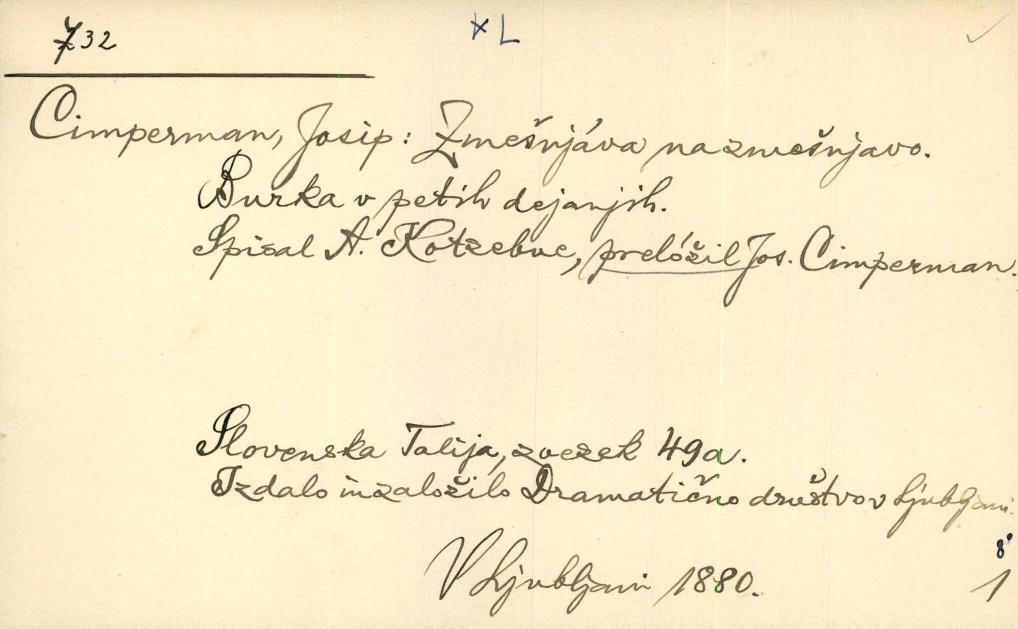 732
XL
Cimperman, Josip: Zmešnjáva na zmešnjavo.
Burka v petih dejanjih.
Spisal A. Kotzebue, preložil Jos. Cimperman.
Slovenska Talija, zvezek 49a.
Izdalo in založilo Dramatično društvo v Ljubljani.
V Ljubljani 1880.
8°
1